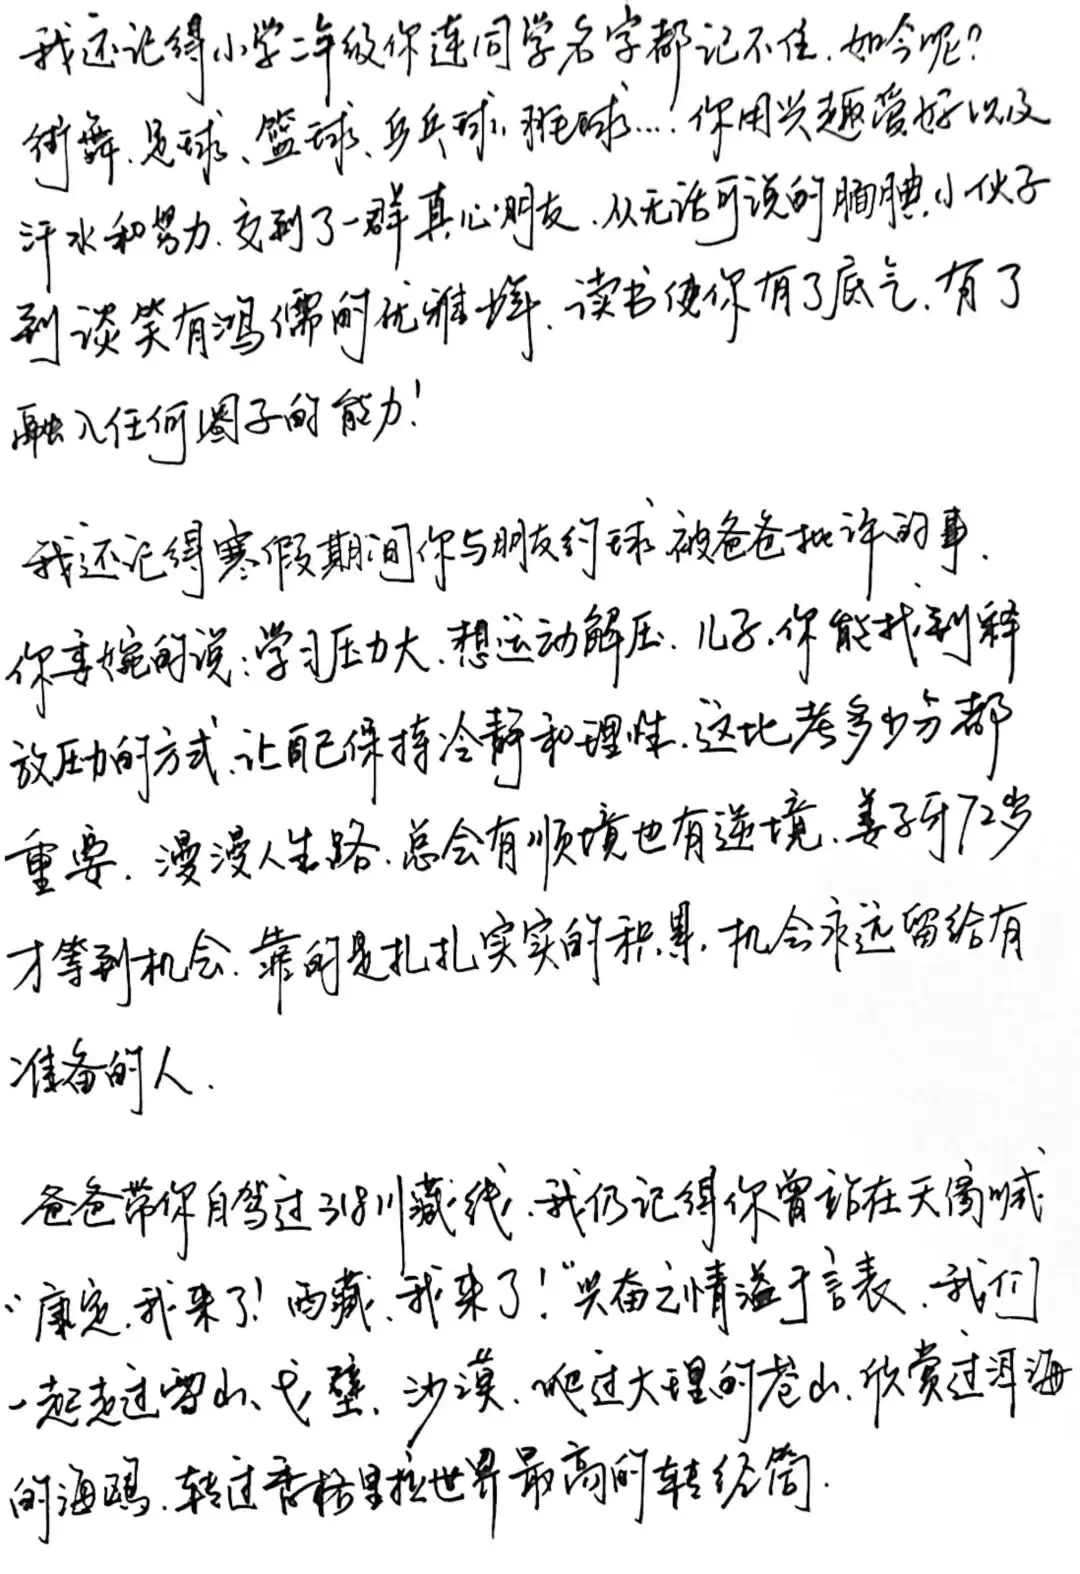 我还记得小学二年级你连同学名字都记不住,如今呢?
街舞、足球、篮球、乒乓球、羽毛球....你用兴趣爱好以及
汗水和努力,交到了一群真心朋友,从无话可说的腼腆小伙子
到谈笑有鸿儒的优雅少年,读书使你有了底气,有了
融入任何圈子的能力!
我还记得寒假期间你与朋友约球被爸爸批评的事,
你委婉的说:学习压力大,想运动解压,儿子,你能找到释
放压力的方式,让自己保持冷静和理性,这比考多少分都
重要.漫漫人生路,总会有顺境也有逆境,姜子牙72岁
才等到机会,靠的是扎扎实实的积累,机会永远留给有
准备的人.
爸爸带你自驾过318川藏线,我仍记得你曾站在天窗喊
"康定,我来了!西藏,我来了!"兴奋之情溢于言表,我们
一起走过雪山、戈壁、沙漠,爬过大理的苍山,欣赏过洱海
的海鸥,转过香格里拉世界最高的转经筒.